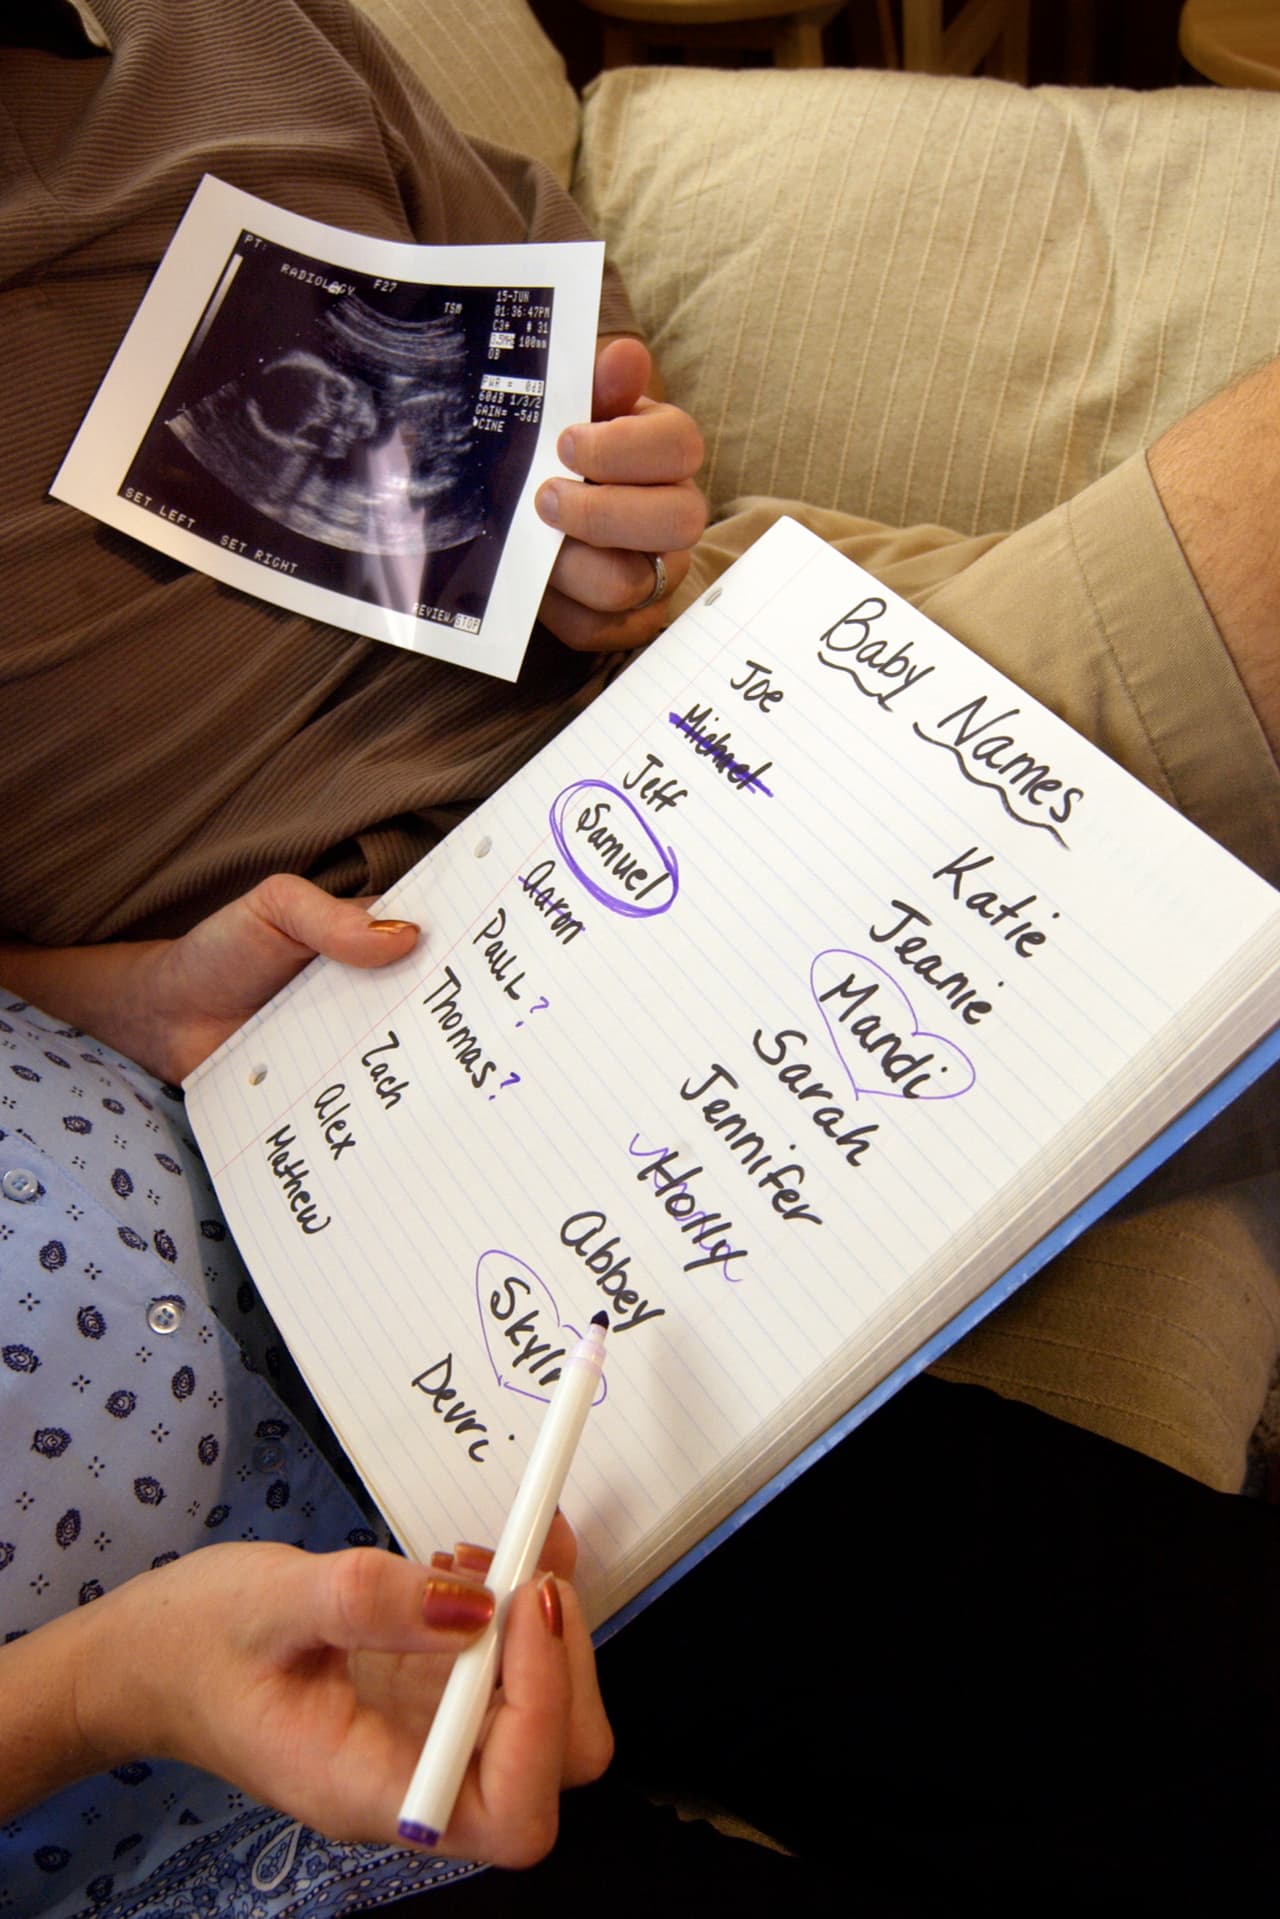 PT:
RADIOLOGY F27
TSM
15-JUN
01:36:47PM
C3* # 31
100mm
OB
PWR = 0dB
60dB 1/3/2
GAIN= -5dB
CINE
SET LEFT
SET RIGHT
REVIEW/STOP
Baby Names
Joe
Michael
Jeff
Samuel
Aaron
Paul?
Thomas?
Zach
Alex
Mathew
Katie
Jeanie
Mandi
Sarah
Jennifer
Holly
Abbey
Devri